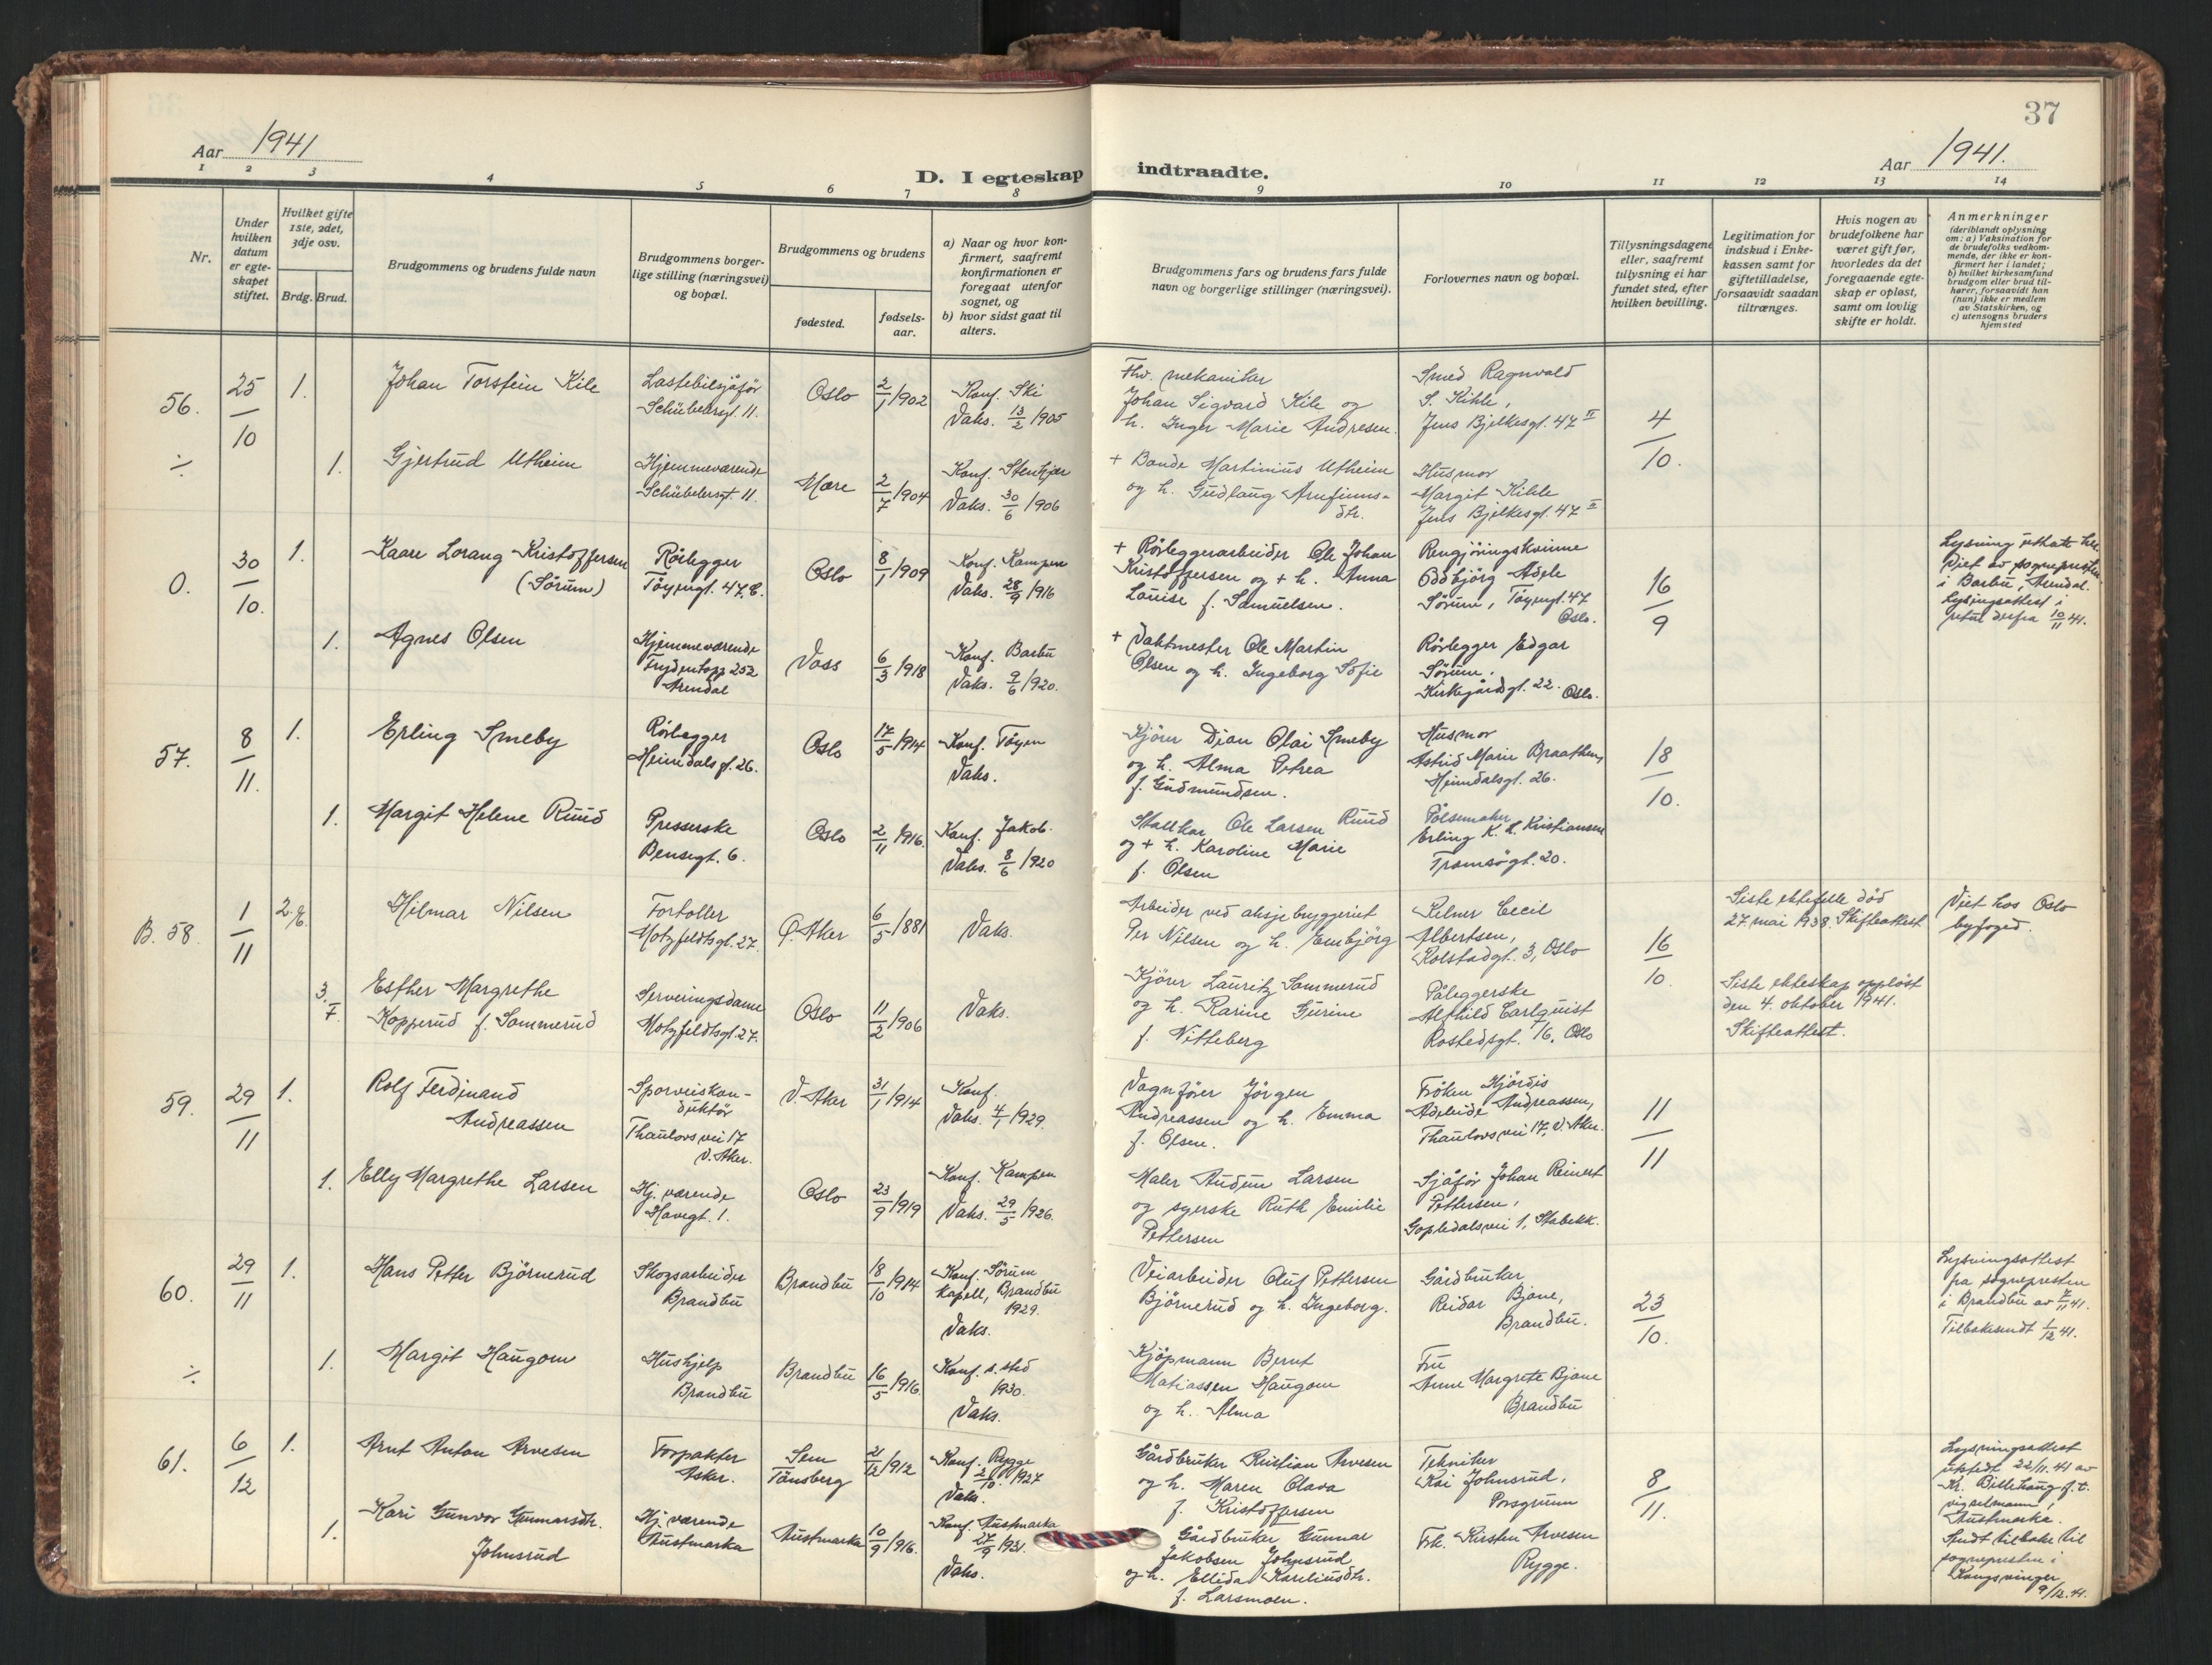 37
Aar 1941
Aar 1941.
D. I egteskap indtraadte.
1 2 3 4 5 6 7 8 9 10 11 12 13 14
Nr.
Under hvilken datum er egte-skapet stiftet.
Hvilket gifte 1ste, 2det, 3dje osv.
Brdg. Brud.
Brudgommens og brudens fulde navn
Brudgommens borger-lige stilling (næringsvei) og bopæl.
Brudgommens og brudens
fødested.
fødsels-aar.
a) Naar og hvor kon-firmert, saafremt konfirmationen er foregaat utenfor sognet, og
b) hvor sidst gaat til alters.
Brudgommens fars og brudens fars fulde navn og borgerlige stillinger (næringsvei).
Forlovernes navn og bopæl.
Tillysningsdagene eller, saafremt tillysning ei har fundet sted, efter hvilken bevilling.
Legitimation for indskud i Enke-kassen samt for giftetilladelse, forsaavidt saadan tiltrænges.
Hvis nogen av brudefolkene har været gift før, hvorledes da det foregaaende egte-skap er opløst, samt om lovlig skifte er holdt.
Anmerkninger (deriblandt oplysning om: a) Vaksination for de brudefolks vedkom-mende, der ikke er kon-firmert her i landet; b) hvilket kirkesamfund brudgom eller brud til-hører, forsaavidt han (hun) ikke er medlem av Statskirken, og c) utensogns bruders hjemsted
56. 25/10 1. Johan Torstein Kile
Lastebilsjåfør
Schübelersgt. 11.
Oslo 2/1 1902
Konf. Ski
Vaks. 13/2 1905
Fhv. mekaniker
Johan Sigvard Kile og
h. Inger Marie Andresen.
Smed Ragnvald
S. Kihle,
Jens Bjelkesgt. 47 II
4/10.
÷ 1. Gjertrud Utheim
Hjemmeværende
Schübelersgt. 11.
Mære 2/7 1904
Konf. Stenkjær
Vaks. 30/6 1906
+ Bonde Martinius Utheim
og h. Gudlaug Arnfinns-
dtr.
Husmor
Margit Kihle
Jens Bjelkesgt. 47 II
0. 30/10. 1. Kaare Lorang Kristoffersen
(Sörum)
Rørlegger
Töyengt. 47, C.
Oslo 8/1 1909
Konf. Kampen
Vaks. 28/9 1916
+ Rørleggerarbeider Ole Johan
Kristoffersen og + h. Anna
Louise f. Samuelsen.
Rengjöringskvinne
Oddbjörg Adele
Sörum, Töyengt. 47
Oslo.
16/9
Lysning uttatt her.
Viet av sognepresten
i Barbu, Arendal.
Lysingsattest i
retur derfra 10/11 41.
1. Agnes Olsen
Hjemmeværende
252
Arendal
Voss 6/3 1918
Konf. Barbu
Vaks. 9/6 1920.
+ Vaktmester Ole Martin
Olsen og h. Ingeborg Sofie
Rörlegger Edgar
Sörum,
Kirkegårdsgt. 22. Oslo.
57. 8/11. 1. Erling Smeby
Rörlegger
Heimdalsgt. 26.
Oslo 17/5 1914
Konf. Töyen
Vaks.
Kjörer Dian Olai Smeby
og h. Alma Petrea
f. Gudmundsen.
Husmor
Astrid Marie Braathen,
Heimdalsgt. 26.
18/10.
1. Margit Helene Ruud
Presserske
Bensegt. 6.
Oslo 2/11 1916.
Konf. Jakob.
Vaks. 8/6 1920
Stallkar Ole Larsen Ruud
og + h. Karoline Marie
f. Olsen
Pölsemaker
Erling K. L. Kristiansen
Tromsögt. 20.
B. 58. 1/11 2. E. Hilmar Nilsen
Fortoller
Motzfeldtsgt. 27.
Ö. Aker 6/5 1881
Vaks.
Arbeider ved aksjebryggeriet
Per Nilsen og h. Embjörg
Reimer Cecil
Albertsen,
Kolstadgt. 3, Oslo
16/10.
Siste ektefelle död
27. mai 1938. Skifteattest
Viet hos Oslo
byfoged.
3. F. Esther Margrethe
Kopperud f. Sommerud
Serveringsdame
Motzfeldtsgt. 27.
Oslo 11/2 1906
Vaks.
Kjörer Lauritz Sommerud
og h. Karine Gurine
f. Nitteberg
Påleggerske
Alfhild Carlquist
Rostedsgt. 16, Oslo
Siste ekteskap opplöst
den 4. oktober 1941.
Skifteattest.
59. 29/11 1. Rolf Ferdinand
Andreassen
Sporveiskon-
duktör
Thaulows vei 17
V. Aker.
V. Aker 31/1 1914
Konf.
Vaks. 4/1 1929.
Vognförer Jörgen
Andreassen og h. Emma
f. Olsen.
Fröken Hjördis
Adeleide Andreassen,
Thaulovs vei 17, V. Aker.
11/11
1. Elly Margrethe Larsen
Hj. værende
Havegt. 1.
Oslo 23/9 1919
Konf. Kampen
Vaks. 29/5 1926.
Maler Audun Larsen
og syerske Ruth Emilie
Pettersen
Sjåför Johan Reinert
Pettersen,
Gopledalsvei 1, Stabekk.
60. 29/11 1. Hans Petter Björnerud
Skogsarbeider
Brandbu
Brandbu 18/10 1914
Konf. Sörum
kapell, Brandbu
1929.
Vaks.
Veiarbeider Oluf Pettersen
Björnerud og h. Ingeborg.
Gårdbruker
Reidar Bjone,
Brandbu.
23/10.
Lysningsattest
fra sognepresten
i Brandbu av 7/11 41.
Tilbakesendt 1/12 41.
÷ 1. Margit Haugom
Hushjelp
Brandbu
Brandbu 16/5 1916.
Konf. s. sted
1930.
Vaks.
Kjöpmann Bernt
Matiassen Haugom
og h. Alma
Fru
Anne Margrete Bjone
Brandbu
61. 6/12 1. Arnt Anton Arvesen
Forpakter
Asker.
Sem
Tönsberg 21/12 1912
Konf. Rygge
2/10 1927
Vaks.
Gårdbruker Kristian Arvesen
og h. Maren Olava
f. Kristoffersen
Tekniker
Kai Johnsrud,
Porsgrunn
8/11.
Lysningsattest
utstedt 22/11. 41 av
Kr. Billehaug f. t.
vigselmann,
Austmarka.
Sendt tilbake til
sognepresten i
Kongsvinger
9/12. 41.
1. Kari Gunvor Gunnarsdtr.
Johnsrud
Hj. værende
Austmarka
Austmarka 10/9 1916.
Konf. Austmarka
27/9 1931.
Vaks.
Gårdbruker Gunnar
Jakobsen Johnsrud
og h. Ellida Kareliusdtr.
f. Larsmoen.
Frk. Kirsten Arvesen
Rygge.